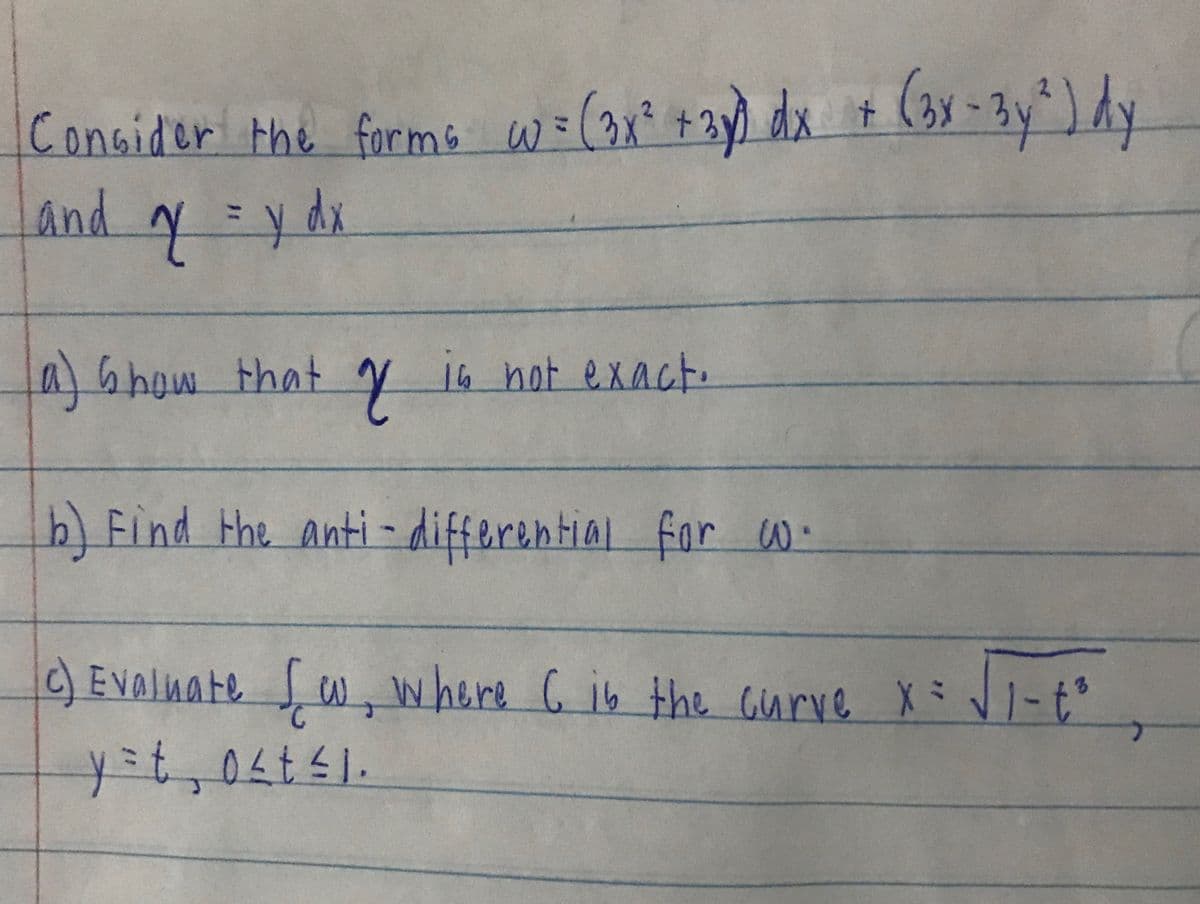 Consider the forms ω = (3x² + 3y) dx + (3x - 3y²) dy
and η = y dx
a) Show that η is not exact.
b) Find the anti-differential for ω.
c) Evaluate ∫_C ω, where C is the curve x = √(1-t³),
y = t, 0 ≤ t ≤ 1.